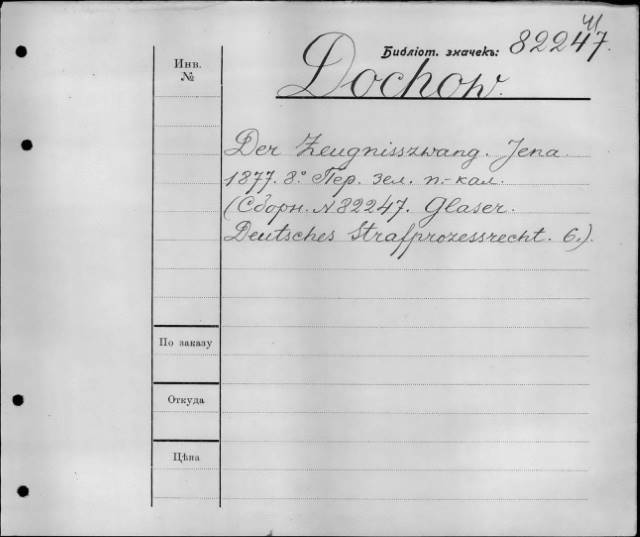 41
Библіот. значекъ: 82247.
Dochow.
Инв.
№
Der Zeugnisszwang. Jena
1877. 8.° Пер. зел. п.-кал.
(Сборн. N 82247. Glaser.
Deutsches Strafprozessrecht. 6.).
По заказу
Откуда
Цѣна